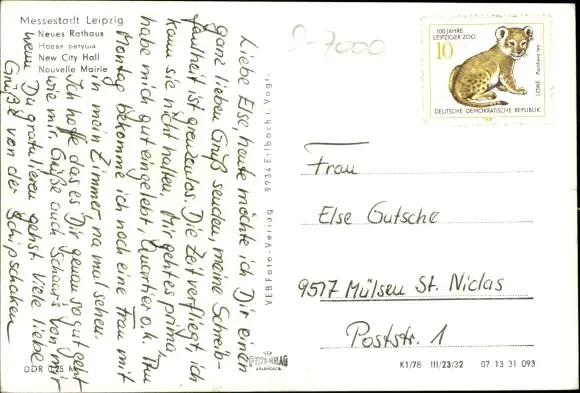 Messestadt Leipzig
Neues Rathaus
Новая ратуша
New City Hall
Nouvelle Mairie
Liebe Else, heute möchte ich Dir einen
ganz lieben Gruß senden, meine Schreib-
faulheit ist grenzenlos. Die Zeit verfliegt, ich
kann sie nicht halten. Mir geht es prima,
habe mich gut eingelebt, Quartier o.k. Am
Montag bekomme ich noch eine Frau mit
in mein Zimmer, na mal sehen.
Ich hoffe das es Dir genau so gut geht
wie mir. Grüße auch Schaar's von mir
wenn Du gratulieren gehst. Viele liebe
Grüße von der Schipschaken
DDR 0,25 M
VEB Foto-Verlag 9934 Erlbach i. Vogtl.
VEB
FOTO-VERLAG
ERLBACH/V.
D-7000
100 JAHRE
LEIPZIGER ZOO
10
LÖWE Panthera leo
DEUTSCHE DEMOKRATISCHE REPUBLIK
Frau
Else Gutsche
9517 Mülsen St. Niclas
Poststr. 1
K1/78 III/23/32 07 13 31 093